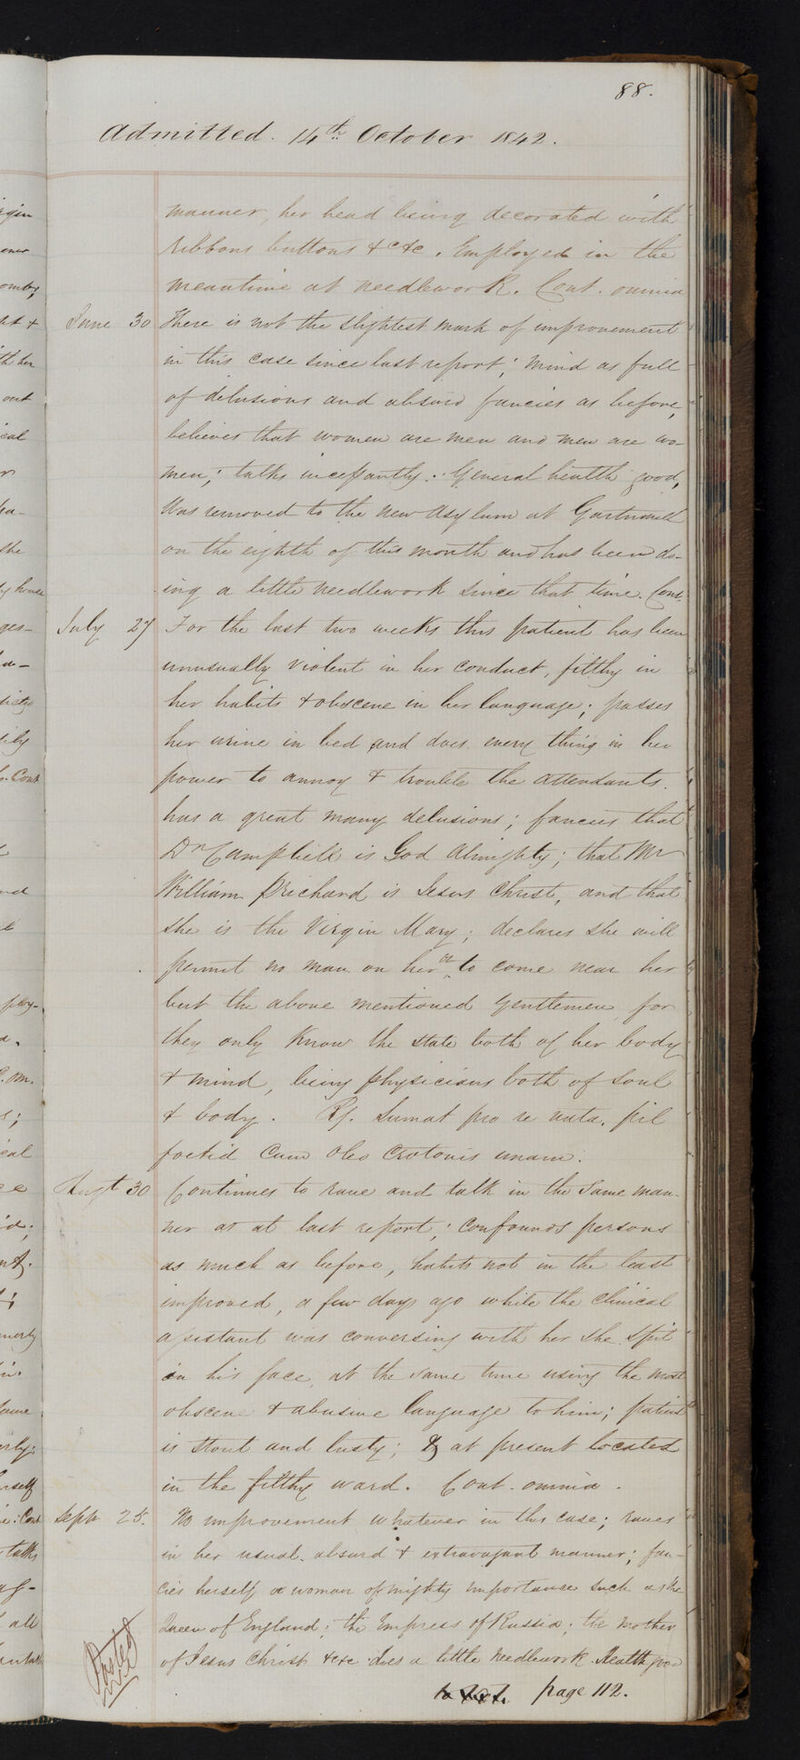 88.
Admitted. 14th October 1842.
manner, her head being decorated with
ribbons buttons &c &c. Employed in the
meantime at needlework. Cont. omnia
June 30 There is not the slightest mark of improvement
in this case since last report; mind as full
of delusions and absurd fancies as before,
believes that women are men and men are wo
men; talks incessantly. General health good,
Was removed to the new Asylum at Gartnavel
on the eighth of this month and has been do-
ing a little needlework since that time. Cont.
July 27 For the last two weeks this patient has been
unusually violent in her conduct, filthy in
her habits & obscene in her language; passes
her urine in bed and does every thing in her
power to annoy & trouble the attendants.
has a great many delusions; fancies that
Dr Campbell is God Almighty; that Mr
William Prichard is Jesus Christ, and that
she is the Virgin Mary; declares she will
permit no man to come near her
but the above mentioned gentlemen for
they only know the state both of her body
& mind, being physicians both of soul
& body. Rx. Sumat pro re nata. pil
foetid cum oleo crotonis unam.
Augt 30 Continues to rave and talk in the same man-
ner as at last report; confounds persons
as much as before, habits not in the least
improved, a few days ago while the clinical
assistant was conversing with her she spit
in his face, at the same time using the most
obscene & abusive language to him; patient
is stout and lusty; & at present located
in the filthy ward. Cont. omnia.
Sept 25. No improvement whatever in this case; raves
in her usual absurd & extravagant manner; fan-
cies herself a woman of mighty importance such as the
Queen of England; the Empress of Russia; the mother
of Jesus Christ &c &c does a little needlework. Health good
Posted
page 112.